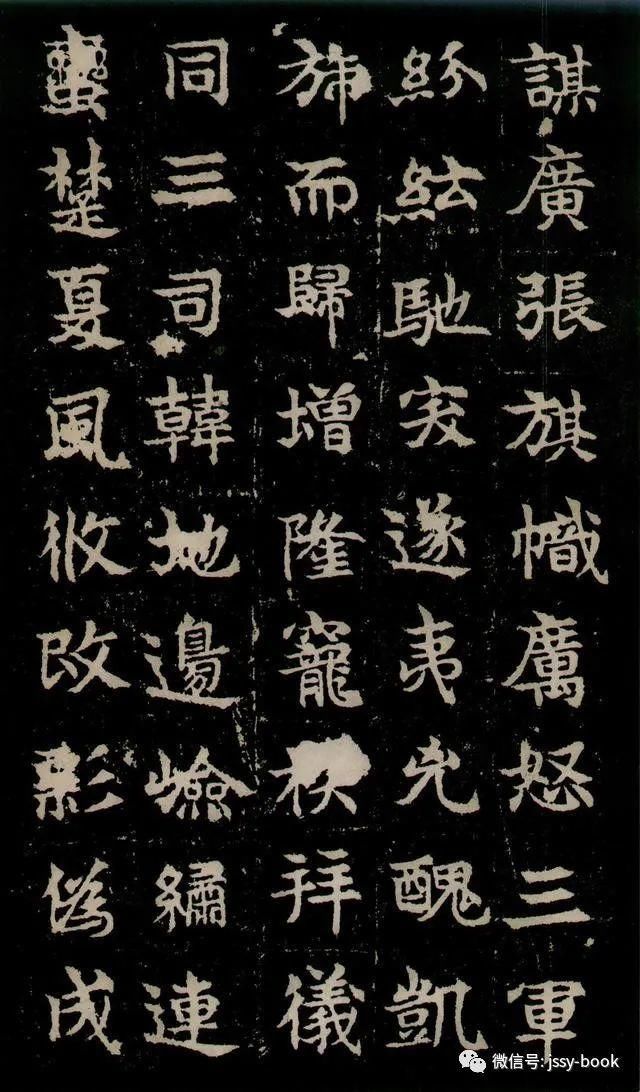 謀廣張旗幟厲怒三軍
紛紜馳突遂夷兇醜凱
旆而歸增隆寵秩拜儀
同三司韓地邊嶮繡連
蠻楚夏風攸改偽成
微信号: jssy-book